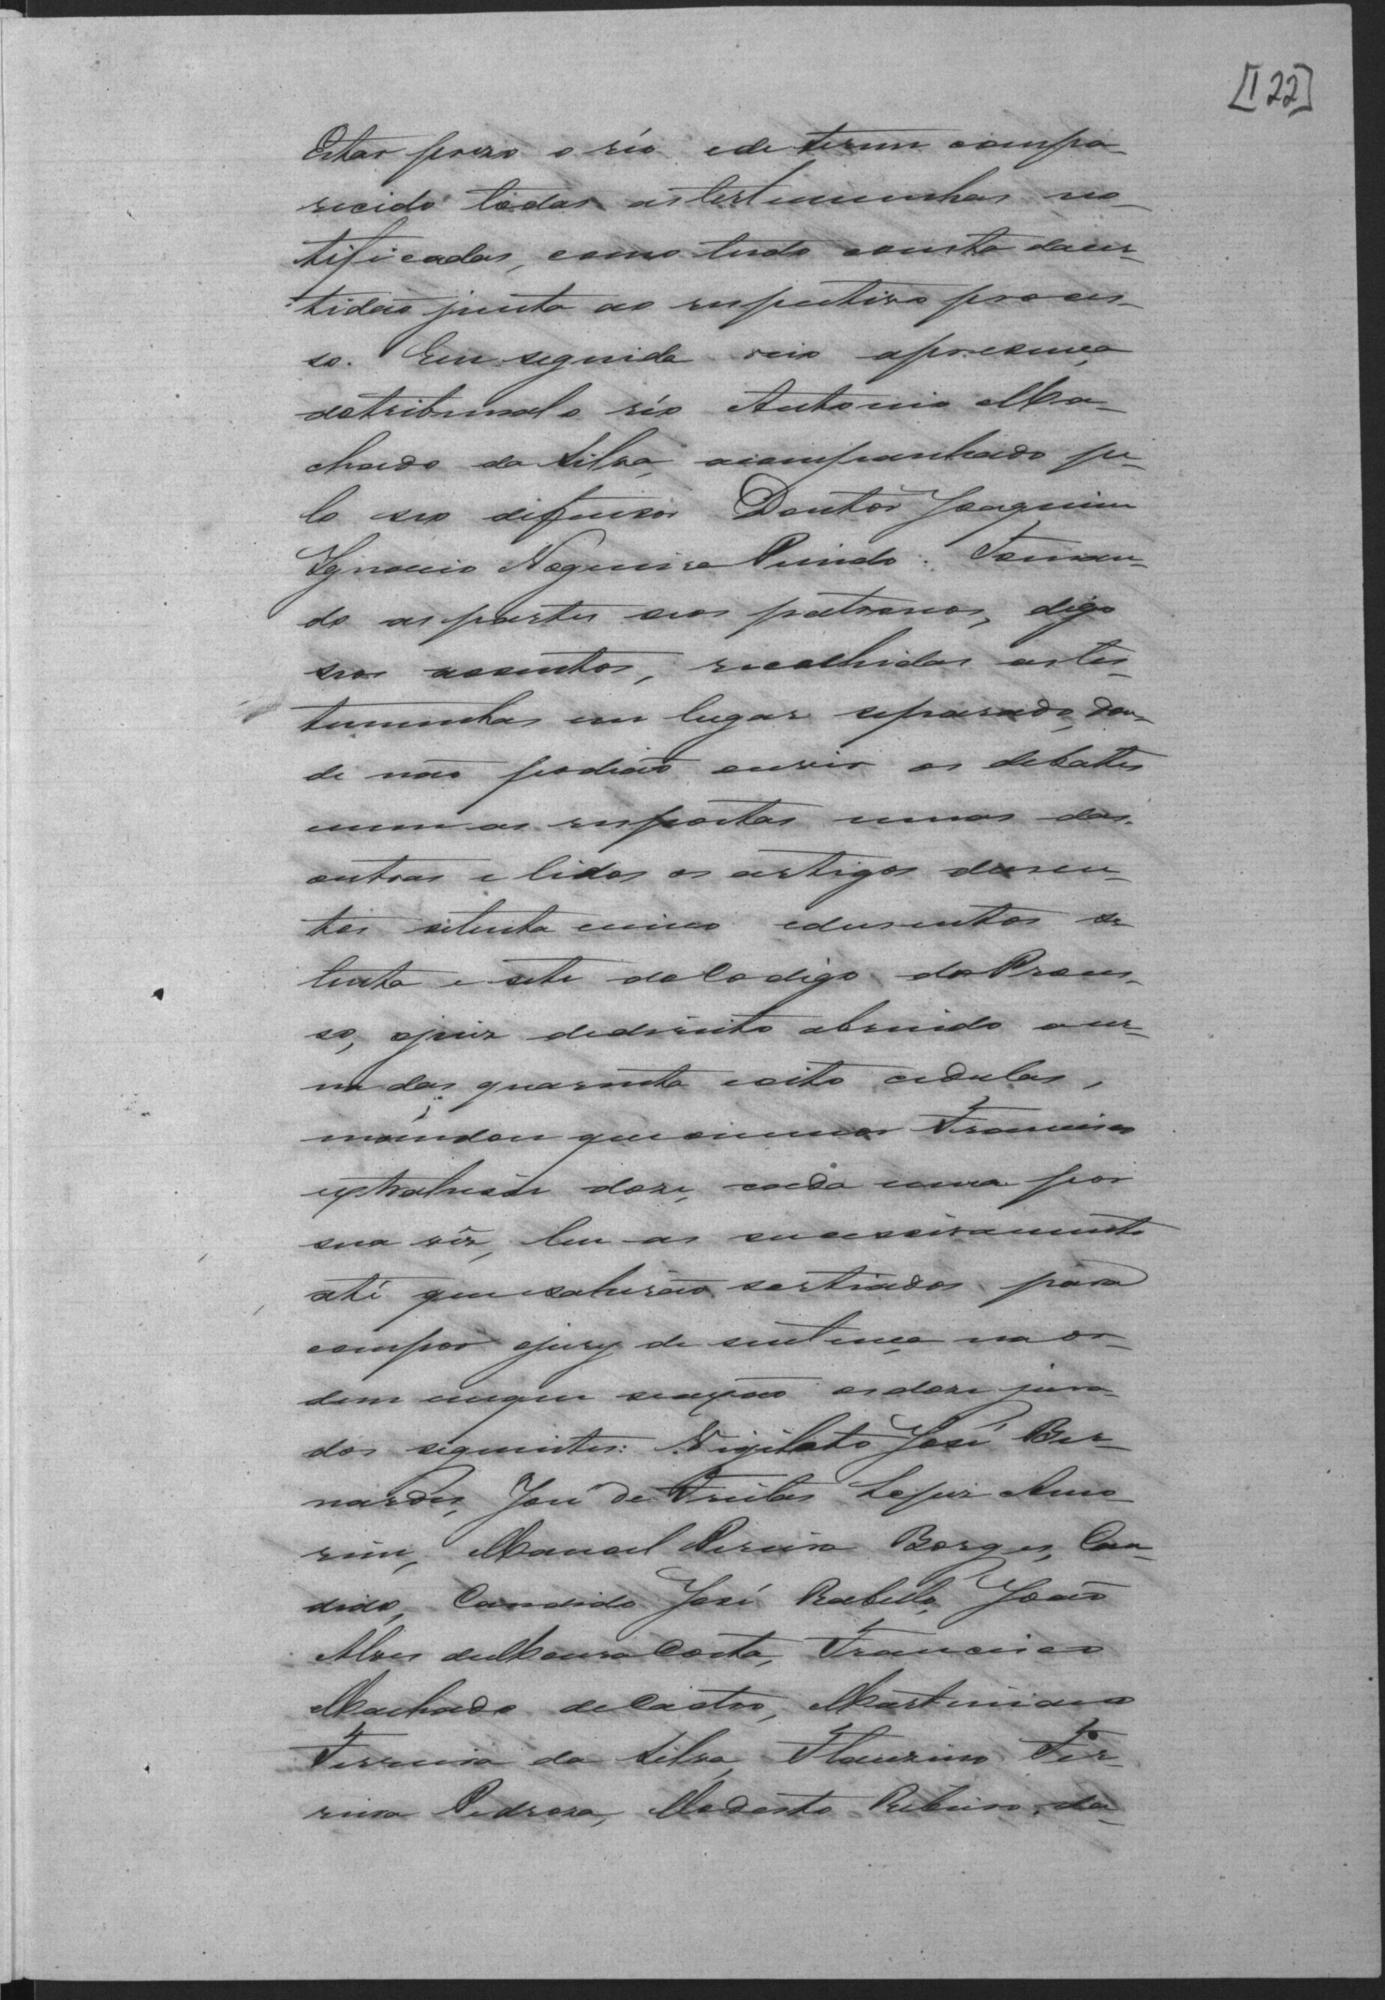 [122]
Estar prezo o réo e de terem compa-
recido todas as testemunhas no-
tificadas, como tudo consta da cer-
tidão junta ao respectivo proces-
so. Em seguida veio a presença
do tribunal o réo Antonio Ma-
chado da Silva, acompanhado pe-
lo seo defensor Doutor Joaquim
Ignacio Nogueira Penido. Toman-
do as partes seos patronos, digo
seos assentos, recolhidas as tes-
temunhas em lugar separado, don-
de não podião ouvir os debates
nem as respostas umas das
outras e lidos os artigos dusen-
tos setenta cinco e dusentos se-
tenta e sete do Codigo do Proces-
so, o juiz de direito abrindo a ur-
na das quarenta e oito cedulas,
mandou que o menor Francisco
extrahisse doze, cada uma por
sua vêz, leu as successivamente
até que sahirão sorteados para
compor o jury de sentença na or-
dem em que se os doze jura-
dos seguintes: Vigilato José Ber-
nardes, José de Freitas Lopes Amo-
rim, Manoel Pereira Borges, Can-
dido, Candido José Rabello, João
Alves de Moura Costa, Francisco
Machado de Castro, Martiniano
Ferreira da Silva, Flauzino Fer-
reira Pedroza, Modesto Ribeiro da